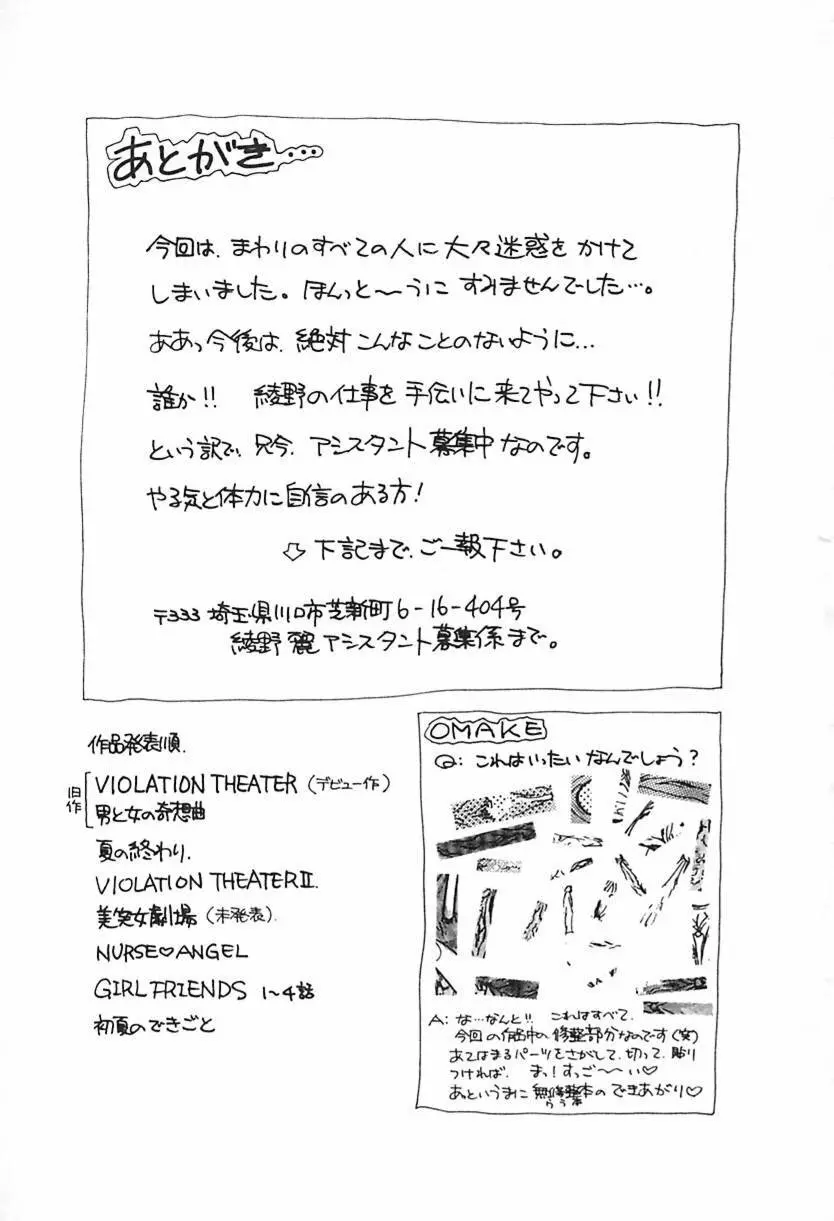 あとがき…
今回は、まわりのすべての人に大々迷惑をかけて
しまいました。ほんっと〜うに すみませんでした…。
ああっ今後は、絶対こんなことのないように…
誰か!! 綾野の仕事を手伝いに来てやって下さい!!
という訳で、只今、アシスタント募集中なのです。
やる気と体力に自信のある方!
⇩下記まで、ご一報下さい。
〒333 埼玉県川口市芝新町6-16-404号
綾野 麗 アシスタント募集係まで。
作品発表順.
旧作
VIOLATION THEATER (デビュー作)
男と女の奇想曲
夏の終わり.
VIOLATION THEATER II.
美実女劇場 (未発表).
NURSE♡ANGEL
GIRL FRIENDS 1〜4話
初夏のできごと
OMAKE
Q: これはいったいなんでしょう?
A: な…なんと!! これはすべて、
今回の作品中の修整部分なのです(笑)
あてはまるパーツをさがして、切って、貼り
つければ、まっ!すっご〜〜い♡
あっというまに無修整本のできあがり♡